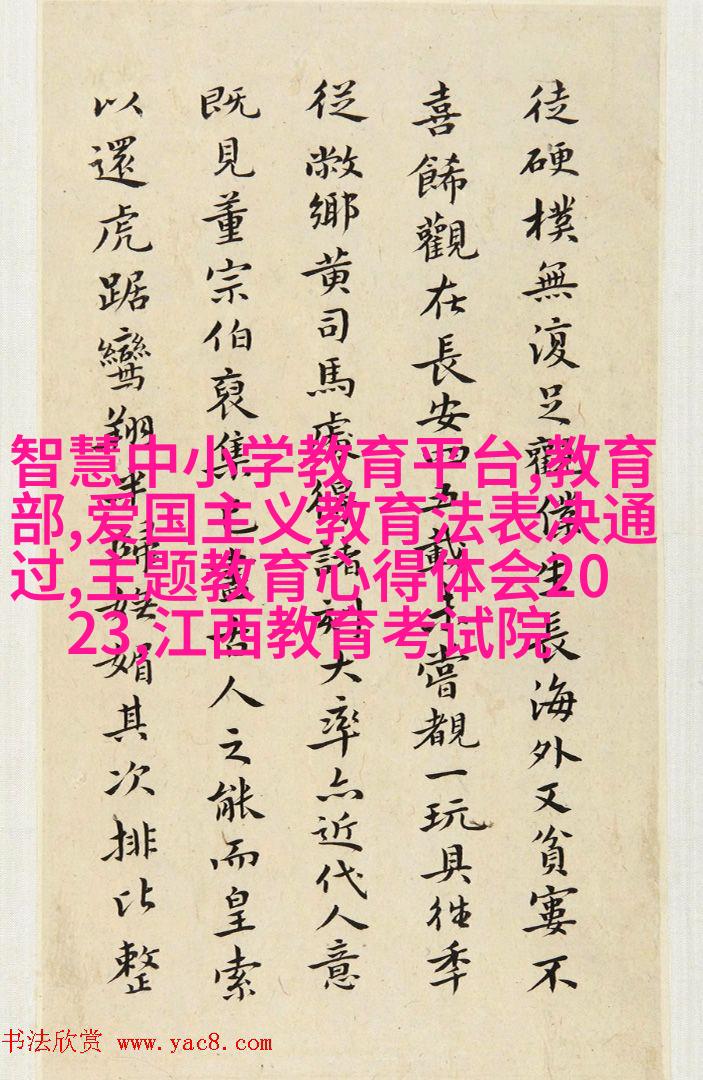 徒硬樸無復足觀僕生長海外又貧窶不
喜餙觀在長安四五載未嘗覩一玩具徃秊
從敝鄉黃司馬處得諸刻大率亦近代人意
既見董宗伯裒集已盡古人之能而皇索
以還虎踞鸞翔歸媚其次排比整
智慧中小学教育平台,教育
部,爱国主义教育法表决通
过,主题教育心得体会20
23,江西教育考试院
书法欣赏 www.yac8.com